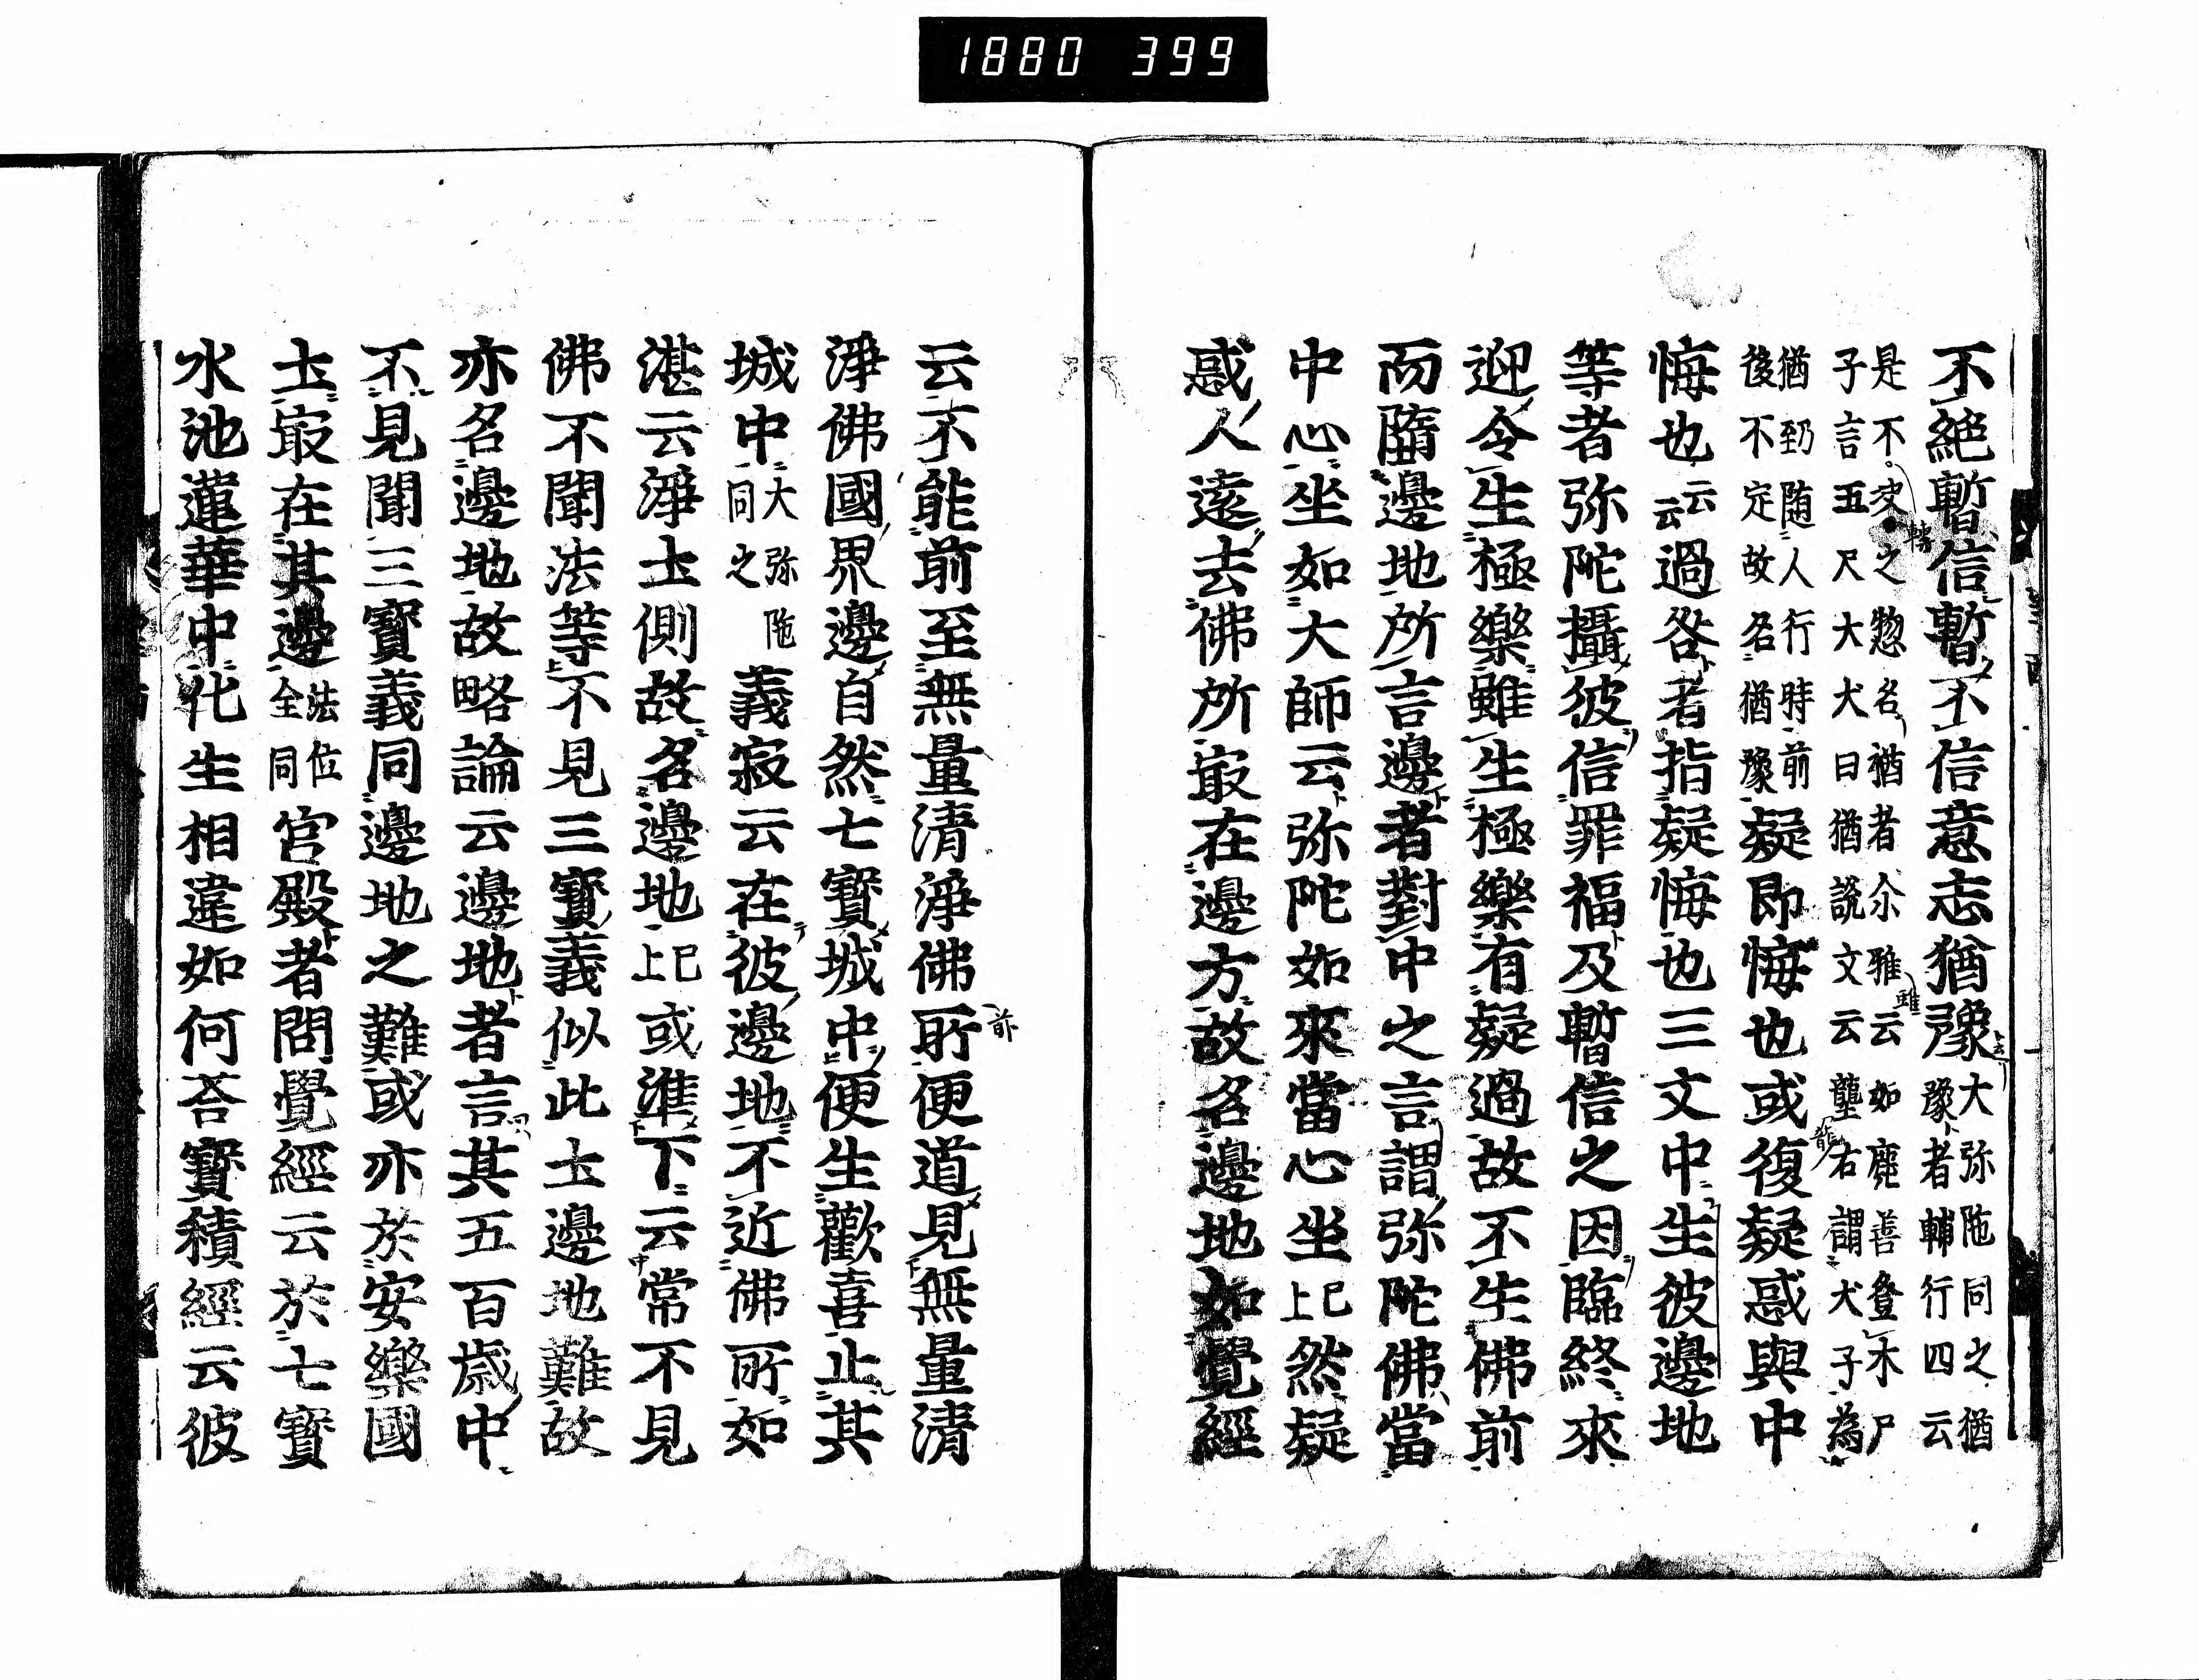 1880 399
不絶暫信暫不信意志猶豫大弥陁同之猶豫者輔行四云
是不决之惣名猶者尒雅云如麂善登木尸子言五尺大犬曰猶說文云壟右謂犬子為
猶到随人行時前後不定故名猶豫疑即悔也或復疑惑與中
悔也云云過咎者指疑悔也三文中生彼邊地
等者弥陀攝彼信罪福及暫信之因臨終來
迎令生極樂雖生極樂有疑過故不生佛前
而隨邊地所言邊者對中之言謂弥陀佛當
中心坐如大師云弥陀如來當心坐已上然疑
惑人遠去佛所最在邊方故名邊地如覺經
云不能前至無量清淨佛所便道見無量清
淨佛國界邊自然七寶城中便生歡喜止其
城中大弥陁同之義寂云在彼邊地不近佛所如
湛云淨土側故名邊地已上或準下云常不見
佛不聞法等不見三寶義似此土邊地難故
亦名邊地故略論云邊地者言其五百歳中
不見聞三寶義同邊地之難或亦於安樂國
土最在其邊法位全同宮殿者問覺經云於七寶
水池蓮華中化生相違如何荅寶積經云彼